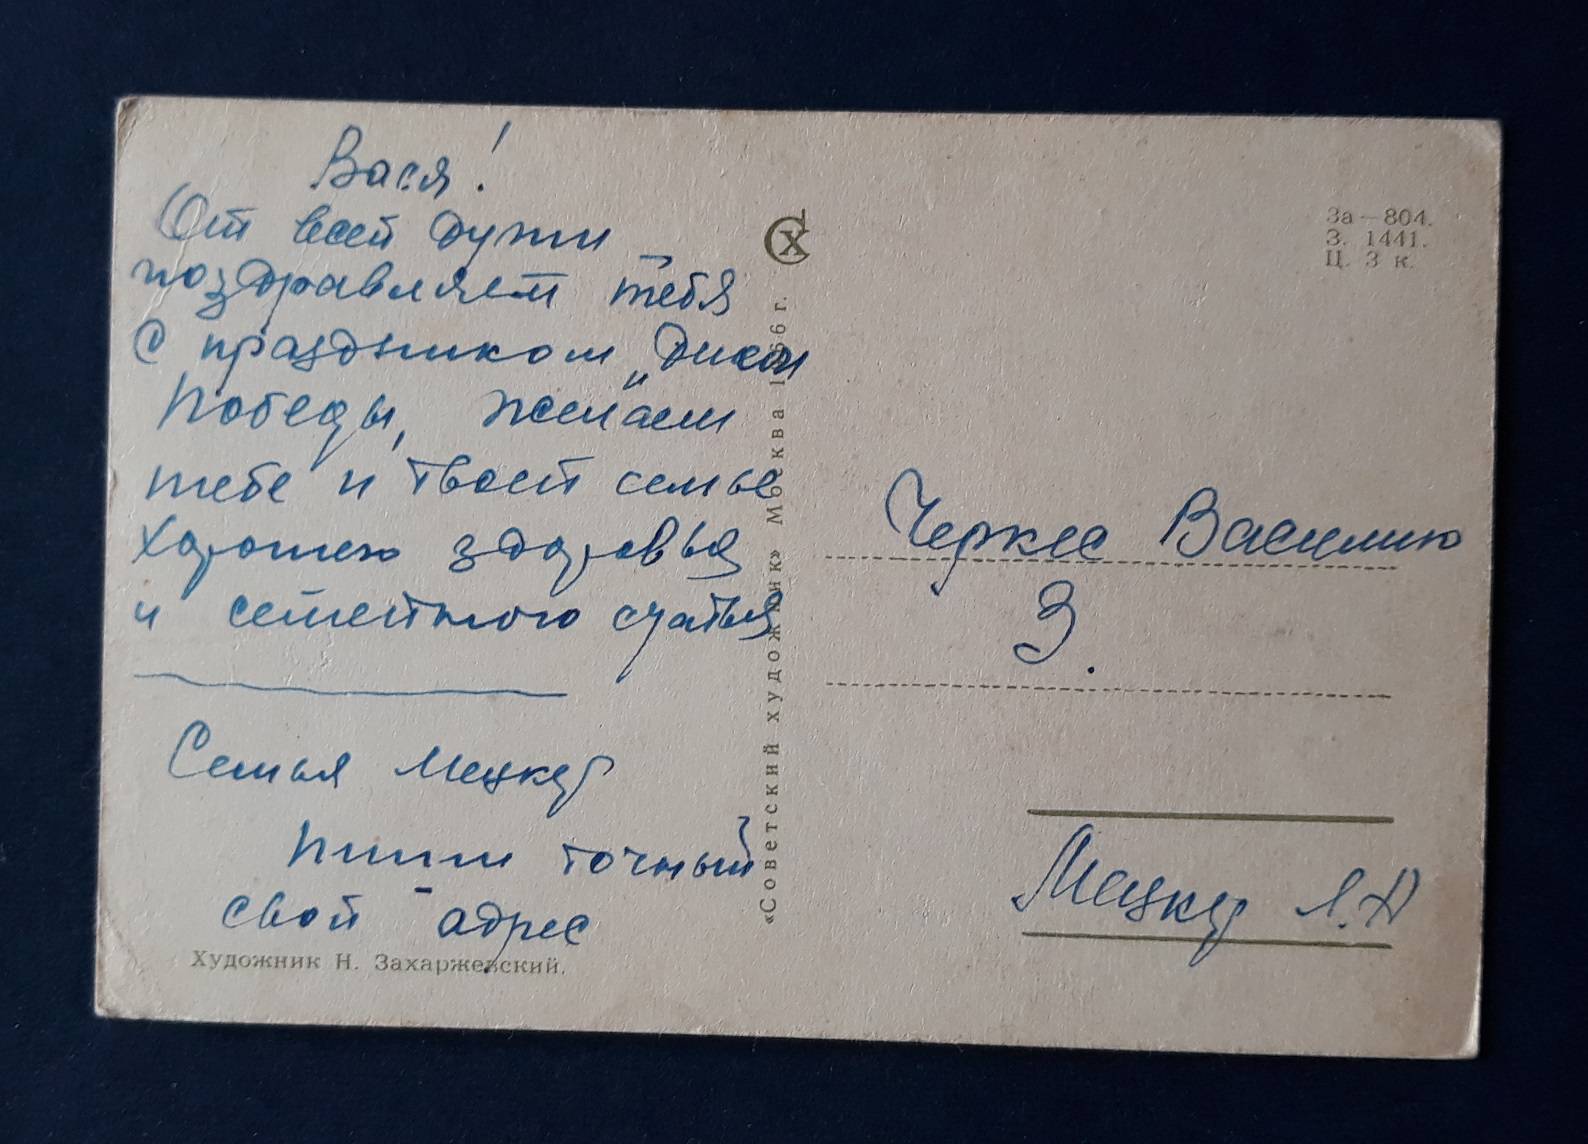 Вася!
От всей души
поздравляем тебя
с праздником „Днем
Победы", желаем
тебе и твоей семье
хорошего здоровья
и семейного счастья
Семья Мецкер
Пиши точный
свой адрес
Художник Н. Захаржевский.
«Советский художник» Москва 1966 г.
СХ
За—804.
З. 1441.
Ц. 3 к.
Черкес Василию
З.
Мецкер Л.Д